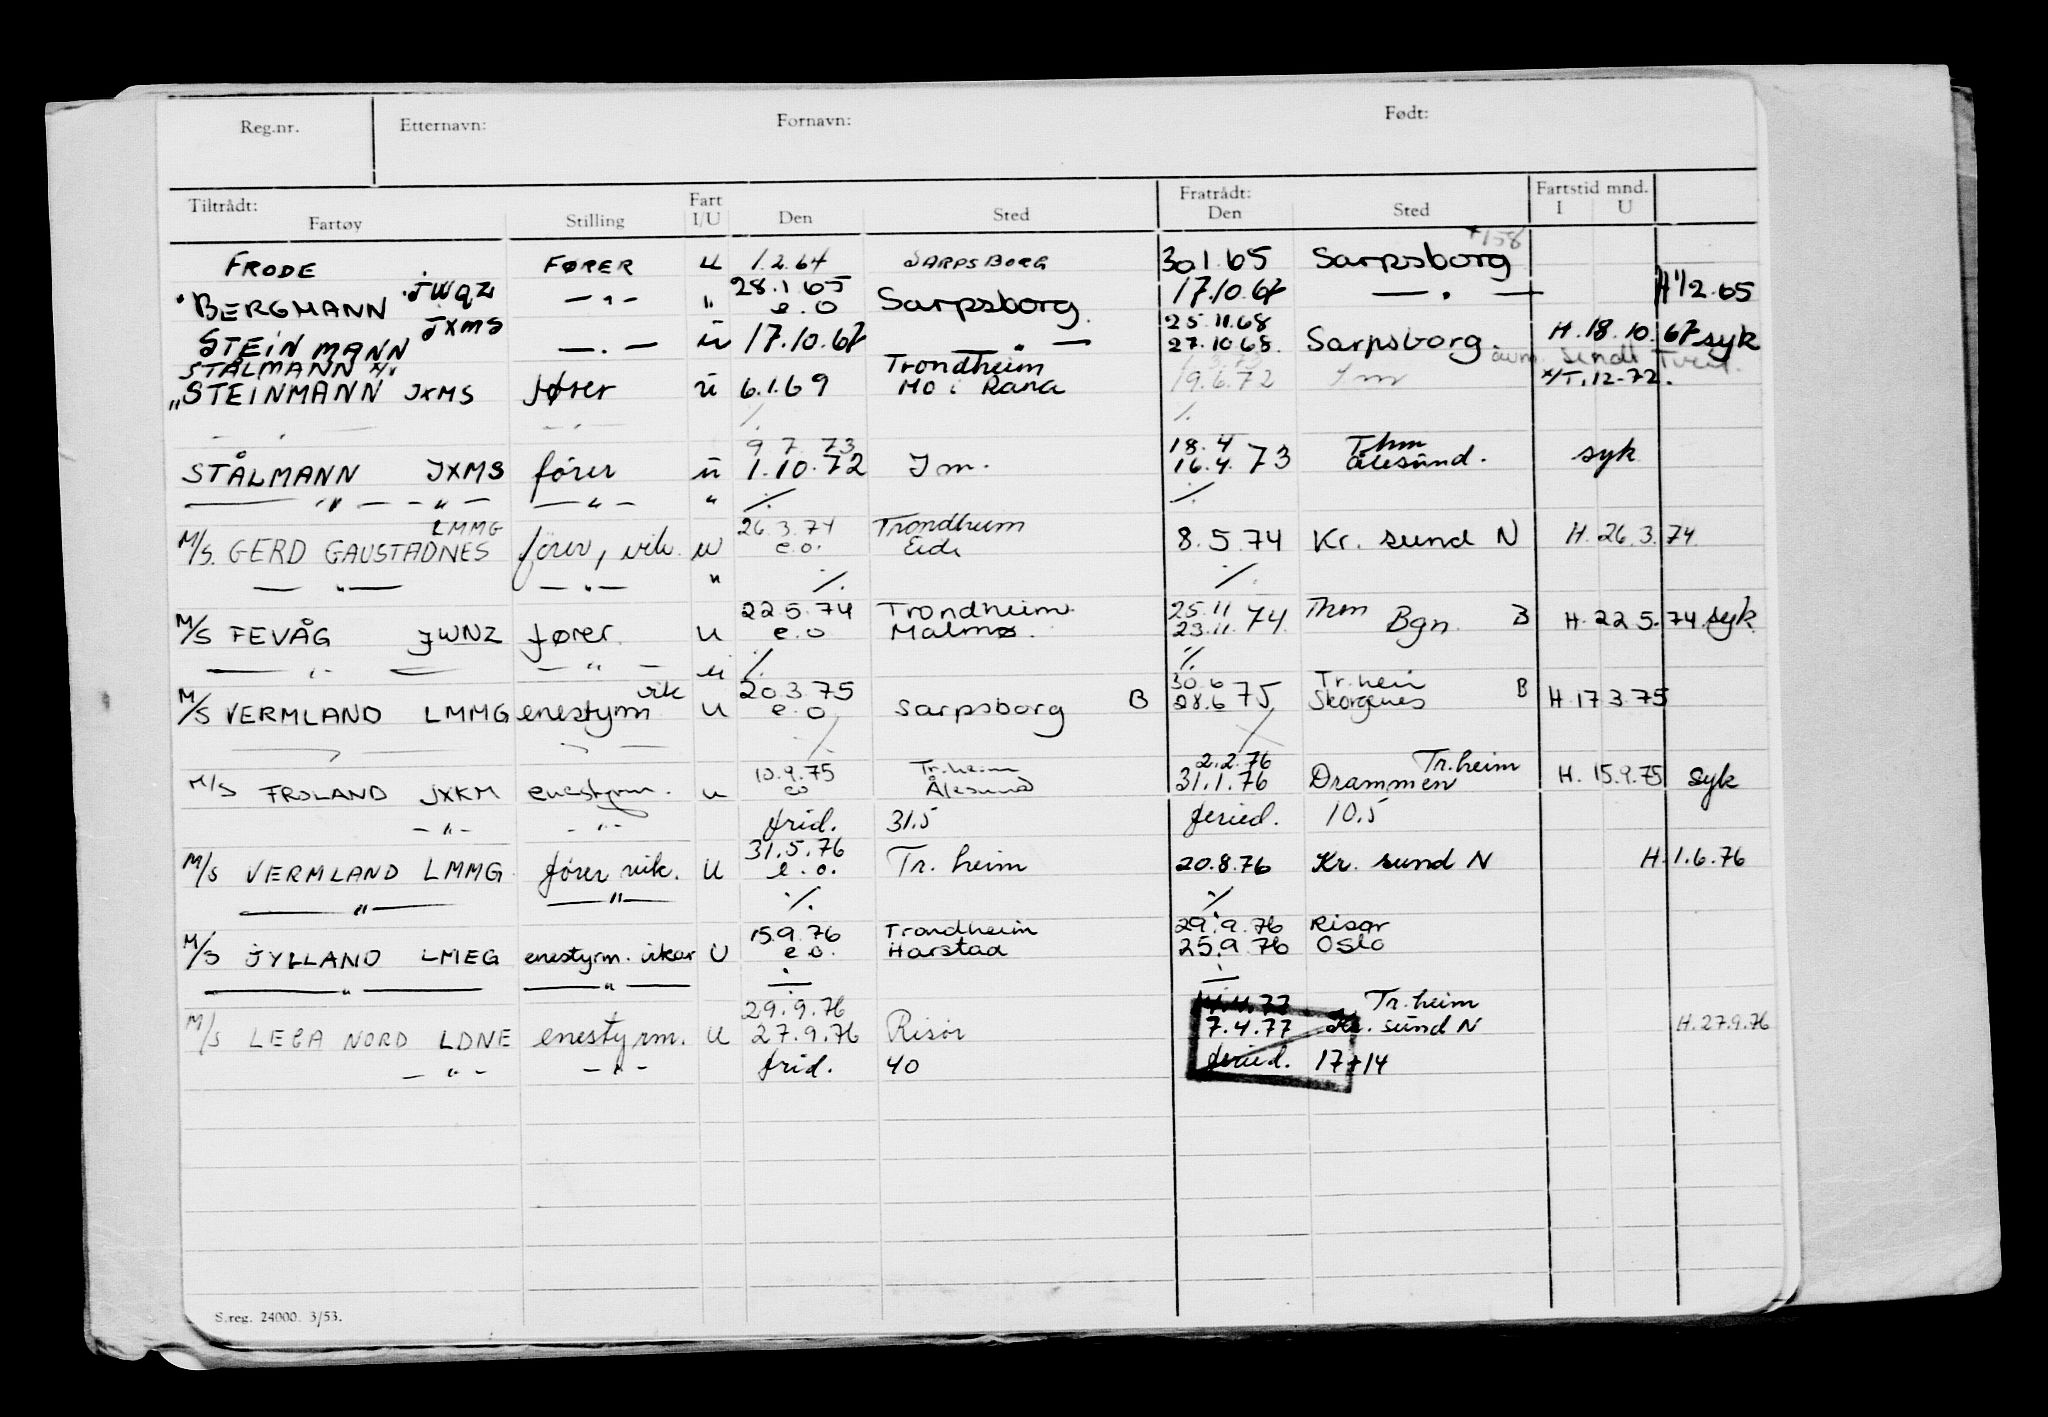 Reg.nr. Etternavn: Fornavn: Født:
Tiltrådt: Fart Fratrådt: Fartstid mnd.
Fartøy Stilling I/U Den Sted Den Sted I U
+158
FRODE FØRER U 1.2.64 SARPSBORG 30.1.65 Sarpsborg
28.1.65
BERGMANN JWQZ — " — " e.o Sarpsborg 17.10.67 — " — H 1/2.65
25.11.68
STEINMANN JXMS — " — ü 17.10.67 — " — 27.10.68 Sarpsborg. H. 18.10.67 syk
STÅLMANN x/ Trondheim
"STEINMANN JXMS fører ü 6.1.69 Mo i Rana 19.6.72 Jm x/T. 12-72.
— " — — " — ./. ./.
9.7.73 18.4 Thm
STÅLMANN JXMS fører ü 1.10.72 Jm. 16.4.73 Ålesund. syk
— " — " — — " — " ./. ./.
LMMG 26.3.74 Trondheim
M/S. GERD GAUSTADNES fører, vik. u e.o. Eide 8.5.74 Kr. sund N H. 26.3.74
— " — — " — " ./. ./.
22.5.74 Trondheim 25.11 Thm
M/S FEVÅG JWNZ fører. U e.o Malmø. 23.11.74 Bgn. B H. 22.5.74 syk
— " — — " — ü ./. ./.
vik 20.3.75 30.6 Tr.heim
M/S VERMLAND LMMG enestyrm U e.o Sarpsborg B 28.6.75 Skorgenes B H. 17.3.75
10.9.75 Tr.heim 2.2.76 Tr.heim
M/S FROLAND JXKM enestyrm. u eo Ålesund 31.1.76 Drammen H. 15.9.75 syk
— " — — " — frid. 31.5 feried. 10.5
31.5.76
M/S VERMLAND LMMG fører vik. U e.o. Tr. heim 20.8.76 Kr. sund N H. 1.6.76
— " — — " — ./. ./.
15.9.76 Trondheim 29.9.76 Risør
M/S JYLLAND LMEG enestyrm. vikar U e.o. Harstad 25.9.76 Oslo
— " — — " — ÷ ÷
29.9.76 14.4.77 Tr.heim
M/S LECA NORD LDNE enestyrm. U 27.9.76 Risør 7.4.77 Kr. sund N H. 27.9.76
— " — — " — frid. 40 feried. 17+14
S.reg. 24000. 3/53.